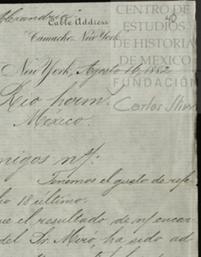 40
Cable Address
Camacho, New York
CENTRO DE
ESTUDIOS
DE HISTORIA
DE MEXICO
FUNDACIÓN
Carlos Slim
New York, Agosto 16, 1882
Mexico.
migos ms/:
Tenemos el gusto de refe
18 último.
ue el resultado de n/ encar
del Sr. Miró, ha sido ad